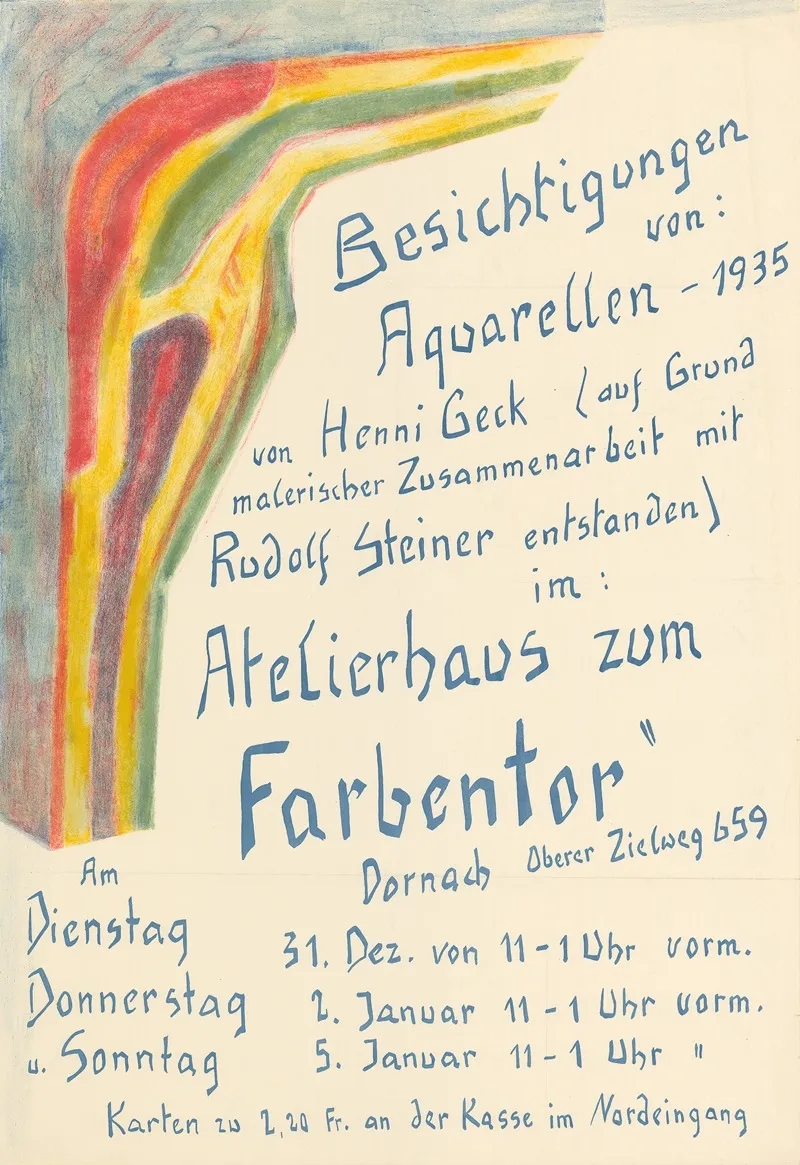 Besichtigungen
von:
Aquarellen - 1935
von Henni Geck (auf Grund
malerischer Zusammenarbeit mit
Rudolf Steiner entstanden)
im:
Atelierhaus zum
Farbentor"
Dornach Oberer Zielweg 659
Am
Dienstag 31. Dez. von 11-1 Uhr vorm.
Donnerstag 2. Januar 11-1 Uhr vorm.
u. Sonntag 5. Januar 11-1 Uhr "
Karten zu 2,20 Fr. an der Kasse im Nordeingang